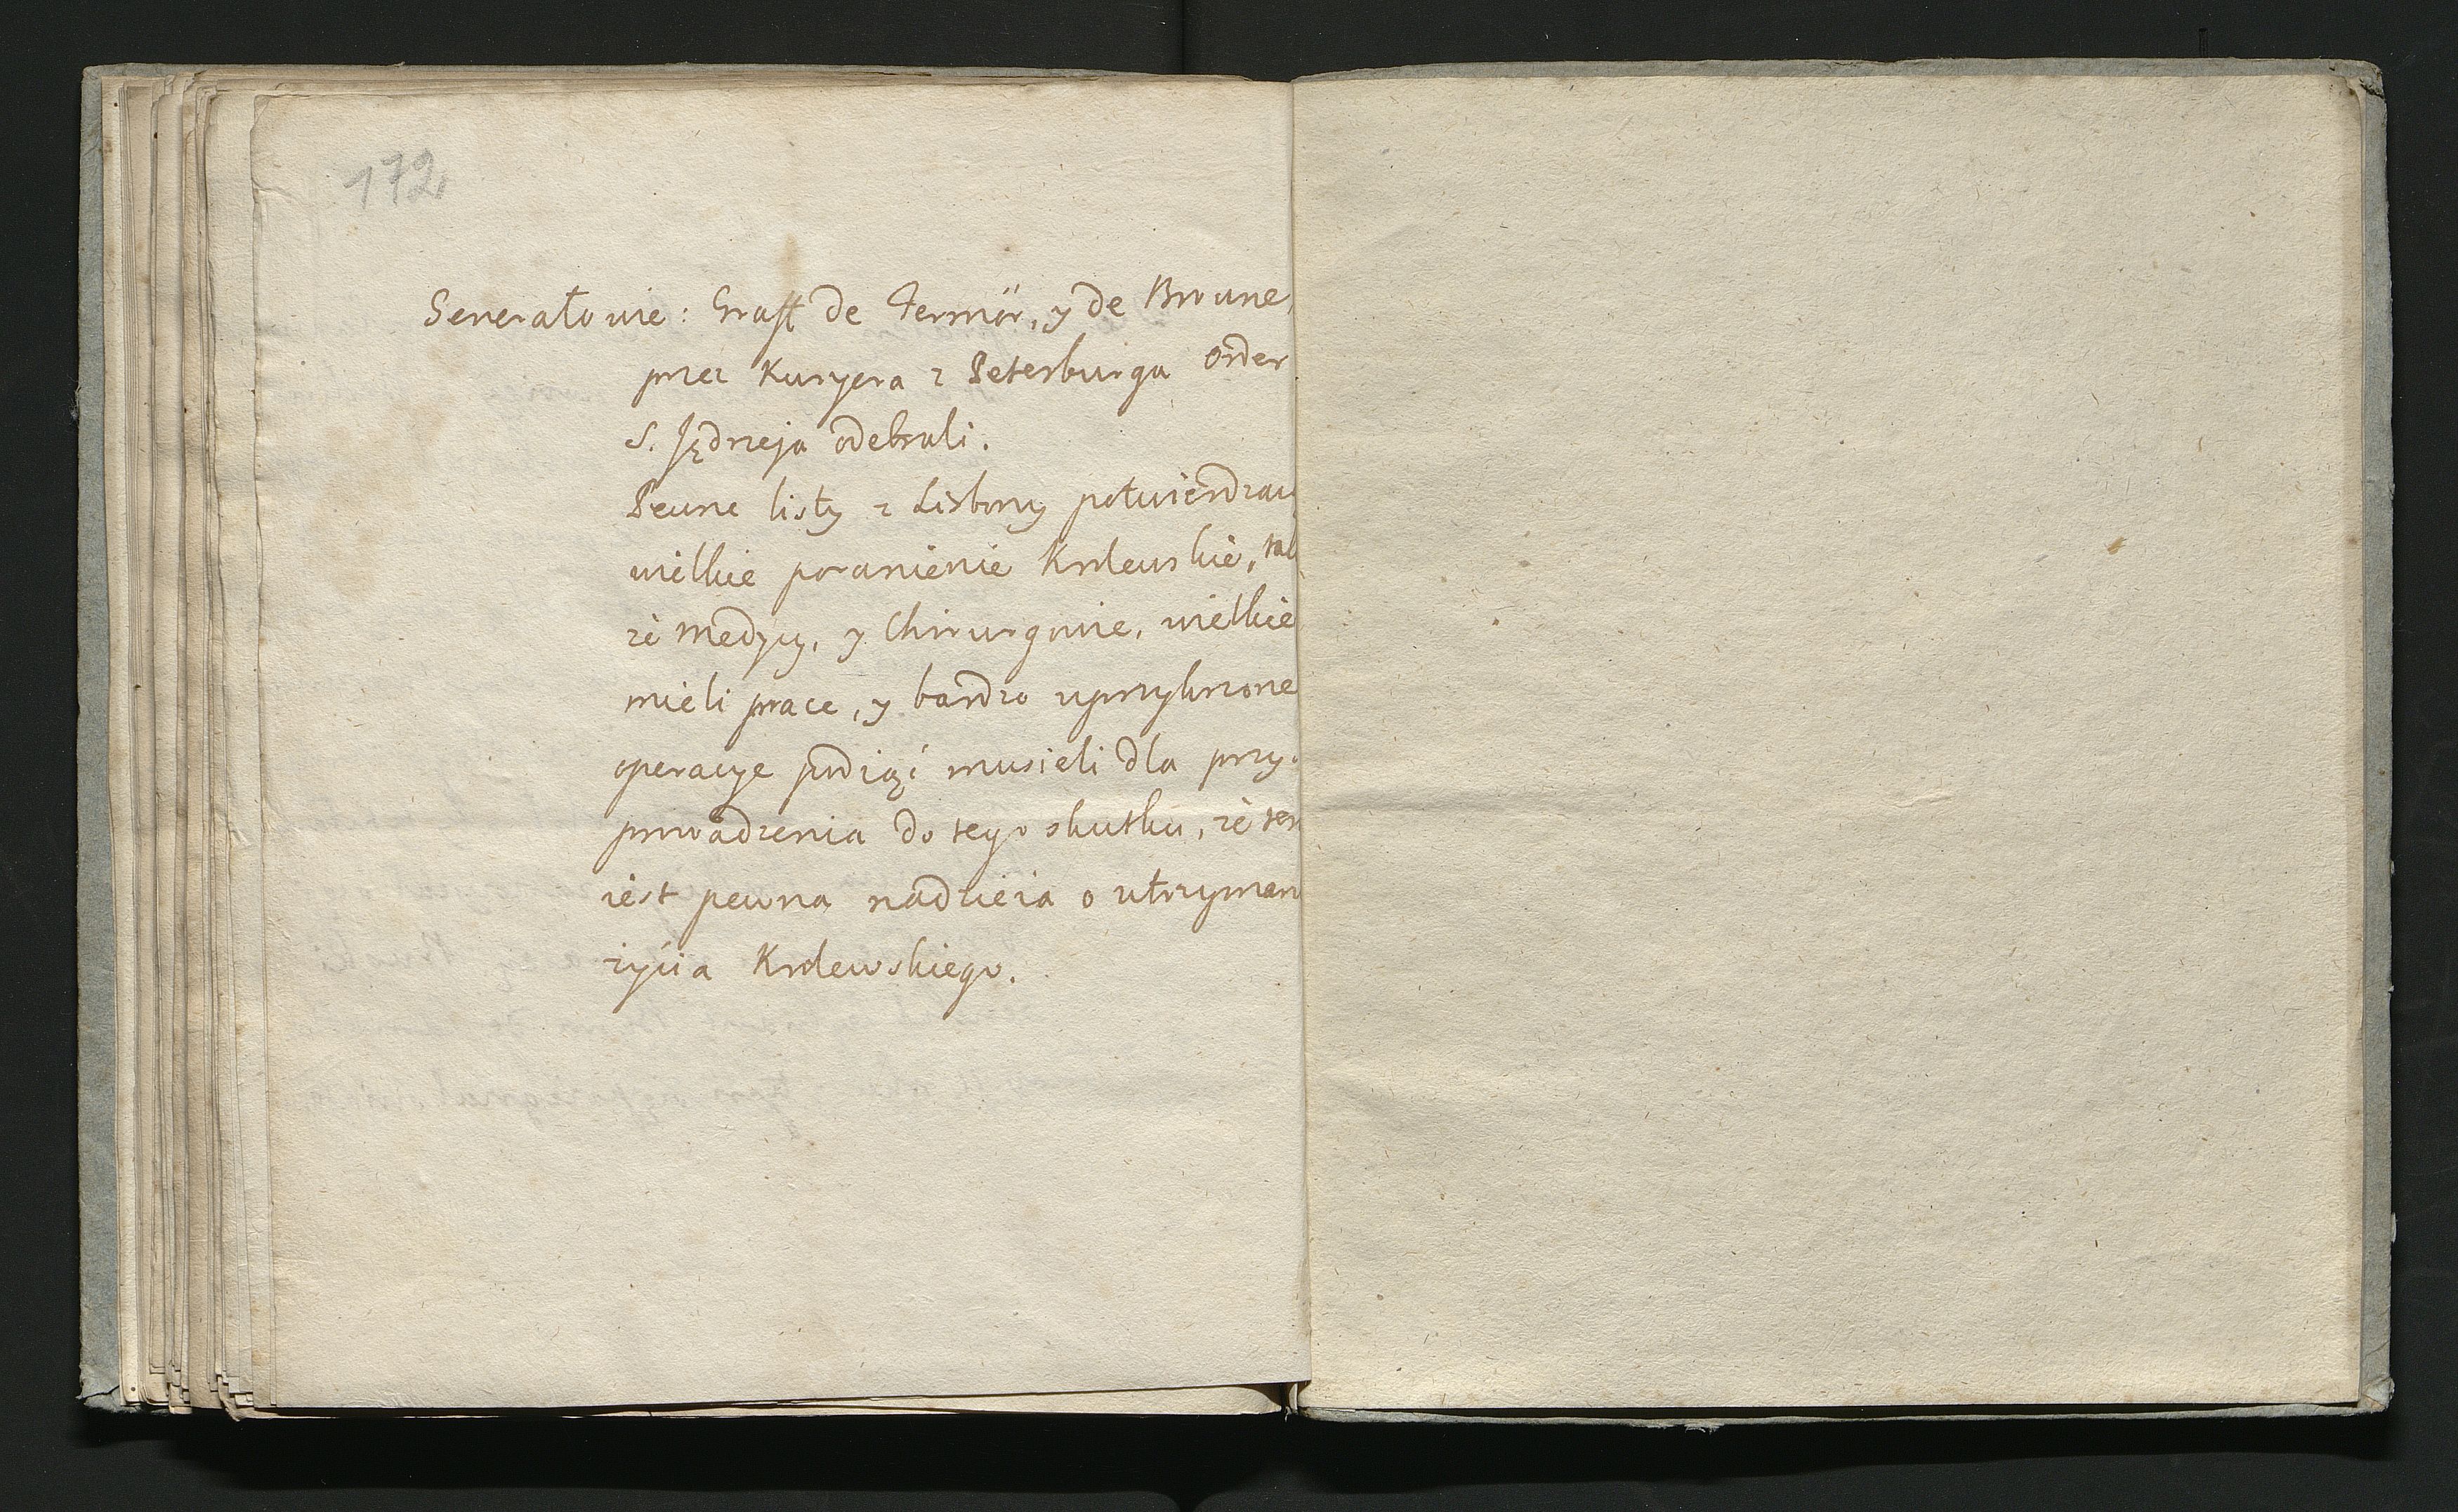 172
Generałowie: Graff de Fermör, y de Broune,
przez Kuryera z Petersburga Order
S. Jędrzeja odebrali.
Pewne listy z Lisbony potwierdzaią
wielkie poranienie Krolewskie, tak
że Medycy, y Chirurgowie, wielkie
mieli prace, y bardzo uprzykrzone
operacye podiąć musieli dla przy-
prowadzenia do tego skutku, że ter
iest pewna nadzieia o utrzyman
życia Krolewskiego.